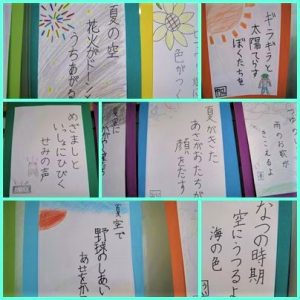 夏の空
花火がドーンと
うちあがる
色がつく
ギラギラと
太陽てらす
ぼくたちを
めざましと
いっしょにひびく
せみの声
夏がきた
あさがおたちが
顔をだす
雨のお歌が
きこえるよ
夏空で
野球のしあい
あせをか
なつの時期
空にうつるよ
海の色